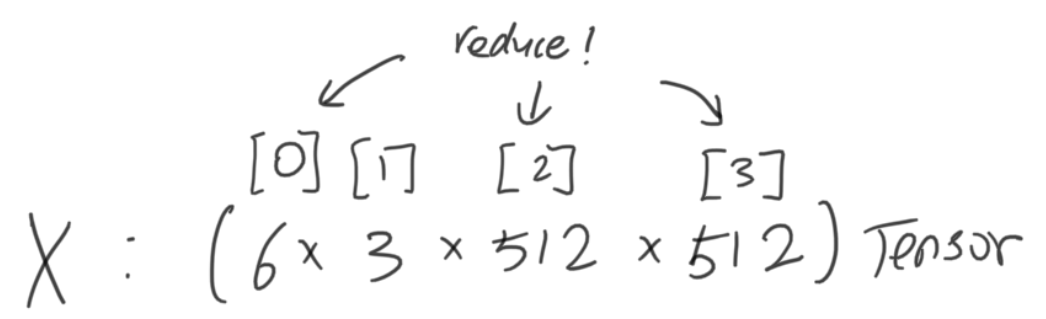 reduce!
[0] [1] [2] [3]
X : (6 × 3 × 512 × 512) Tensor